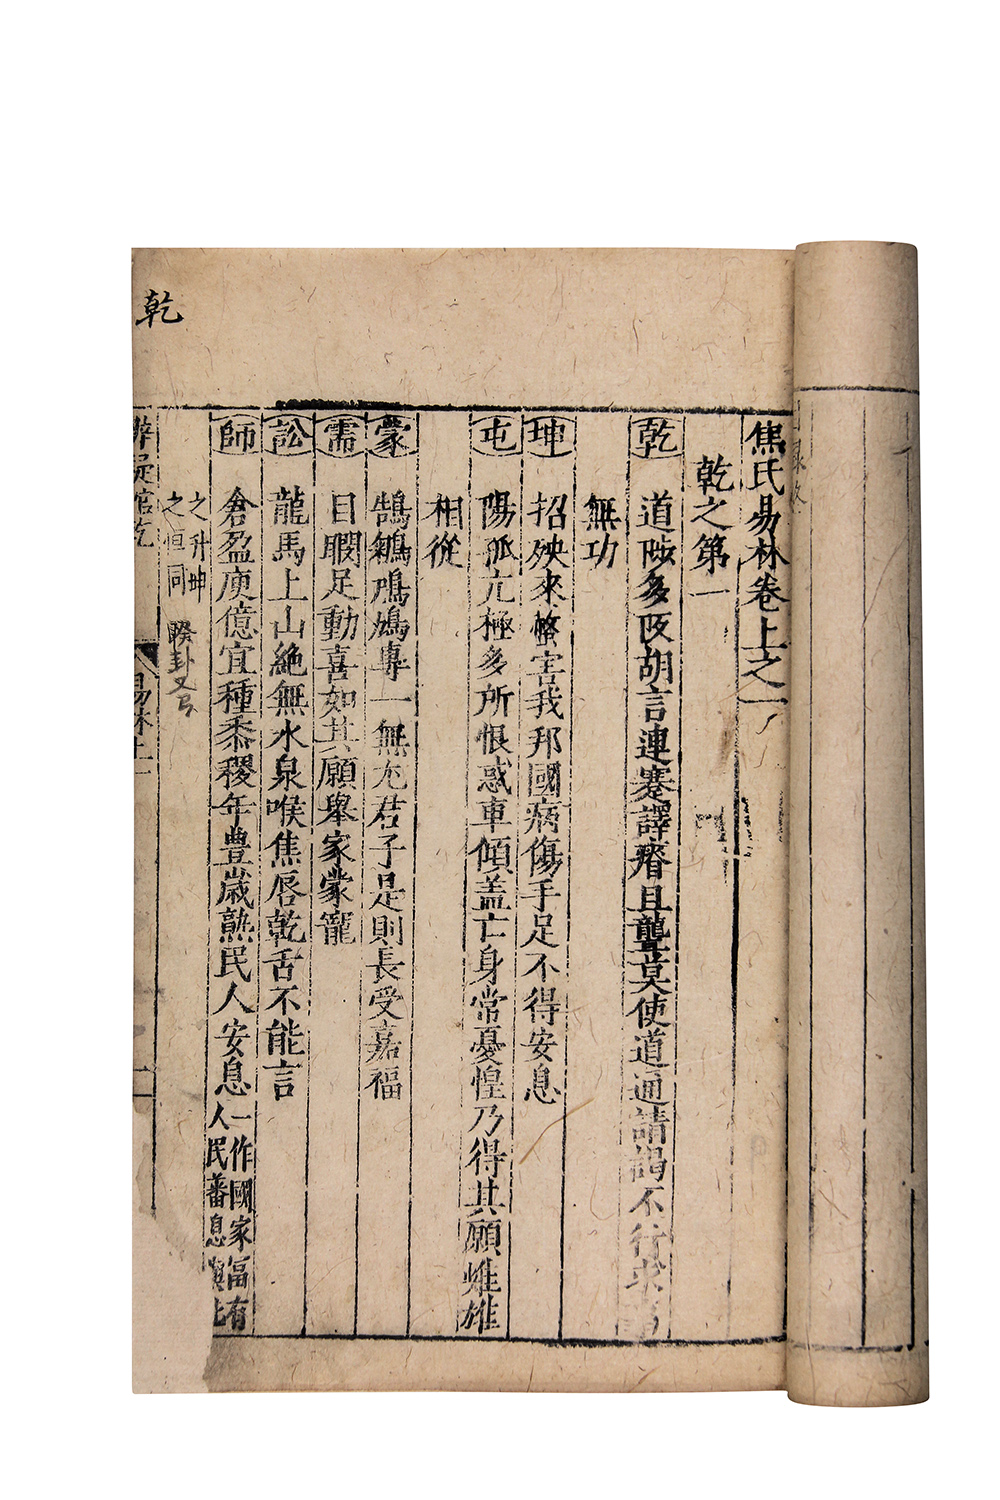 焦氏易林卷上之一
乾之第一
乾 道陟多阪胡言連蹇譯瘖且聾莫使道通請謁不行求事
無功
坤 招殃來螫害我邦國病傷手足不得安息
屯 陽孤亢極多所恨惑車傾盖亡身常憂惶乃得其願雌雄
相從
蒙 鵠鵴鳲鳩專一無尤君子是則長受嘉福
需 目瞤足動喜如其願舉家蒙寵
訟 龍馬上山絶無水泉喉焦唇乾舌不能言
師 倉盈庾億宜種黍稷年豊歲熟民人安息 一作國家富有
人民蕃息
之升坤
之恒同
睽卦又
乾
易林上